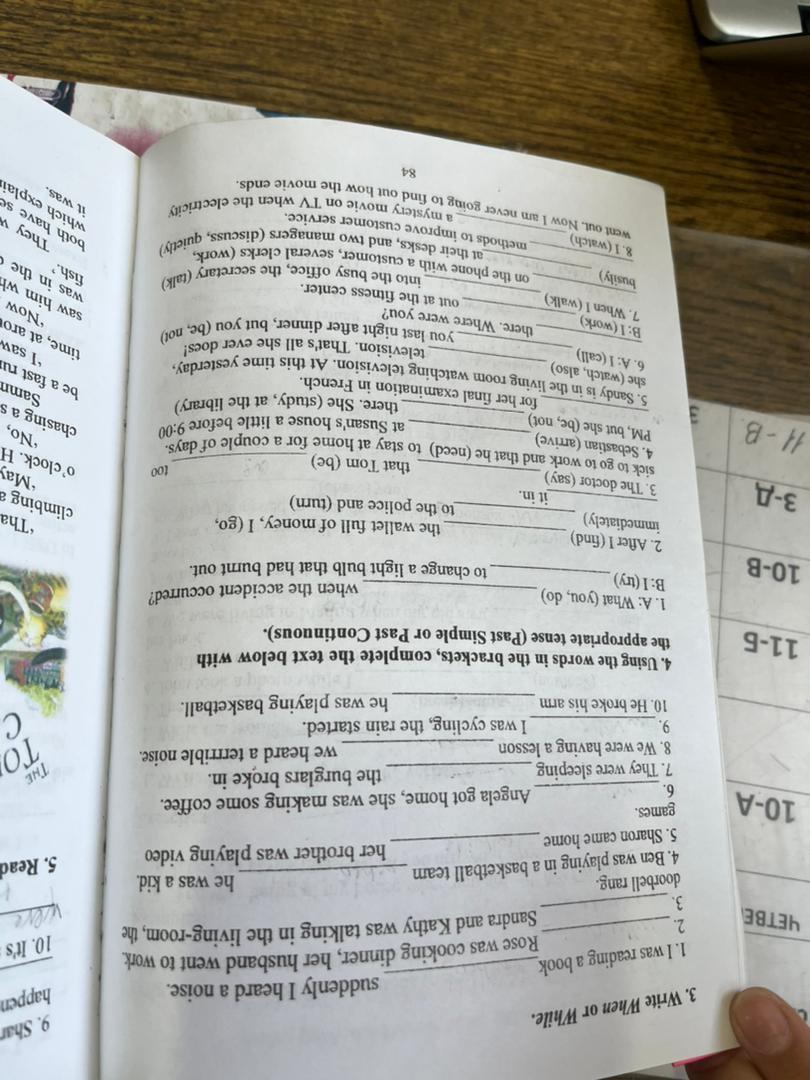 3. Write When or While.
1. I was reading a book ________ suddenly I heard a noise.
2. ________ Rose was cooking dinner, her husband went to work.
3. ________ Sandra and Kathy was talking in the living-room, the
doorbell rang.
4. Ben was playing in a basketball team ________ he was a kid.
5. Sharon came home ________ her brother was playing video
games.
6. ________ Angela got home, she was making some coffee.
7. They were sleeping ________ the burglars broke in.
8. We were having a lesson ________ we heard a terrrible noise.
9. ________ I was cycling, the rain started.
10. He broke his arm ________ he was playing basketball.
4. Using the words in the brackets, complete the text below with
the appropriate tense (Past Simple or Past Continuous).
1. A: What (you, do) ________ when the accident occurred?
B: I (try) ________ to change a light bulb that had burnt out.
2. After I (find) ________ the wallet full of money, I (go,
immediately) ________ to the police and (turn)
________ it in.
3. The doctor (say) ________ that Tom (be) ________ too
sick to go to work and that he (need) to stay at home for a couple of days.
4. Sebastian (arrive) ________ at Susan's house a little before 9:00
PM, but she (be, not) ________ there. She (study, at the library)
________ for her final examination in French.
5. Sandy is in the living room watching television. At this time yesterday,
she (watch, also) ________ television. That's all she ever does!
6. A: I (call) ________ you last night after dinner, but you (be, not)
________ there. Where were you?
B: I (work) ________ out at the fitness center.
7. When I (walk) ________ into the busy office, the secretary (talk)
________ on the phone with a customer, several clerks (work,
busily) ________ at their desks, and two managers (discuss, quietly)
________ methods to improve customer service.
8. I (watch) ________ a mystery movie on TV when the electricity
went out. Now I am never going to find out how the movie ends.
84
9. Shar
happen
10. It's
were
5. Read
THE
TO
C
'Tha
climbing a
'May
o'clock. H
'No,
chasing a s
Samm
be a fast ru
'I saw
time, at arou
'Now
saw him wh
was in the
fish,'
They w
both have se
which explain
it was.
ЧЕТВЕ
10-А
11-Б
10-В
3-Д
11-В
3